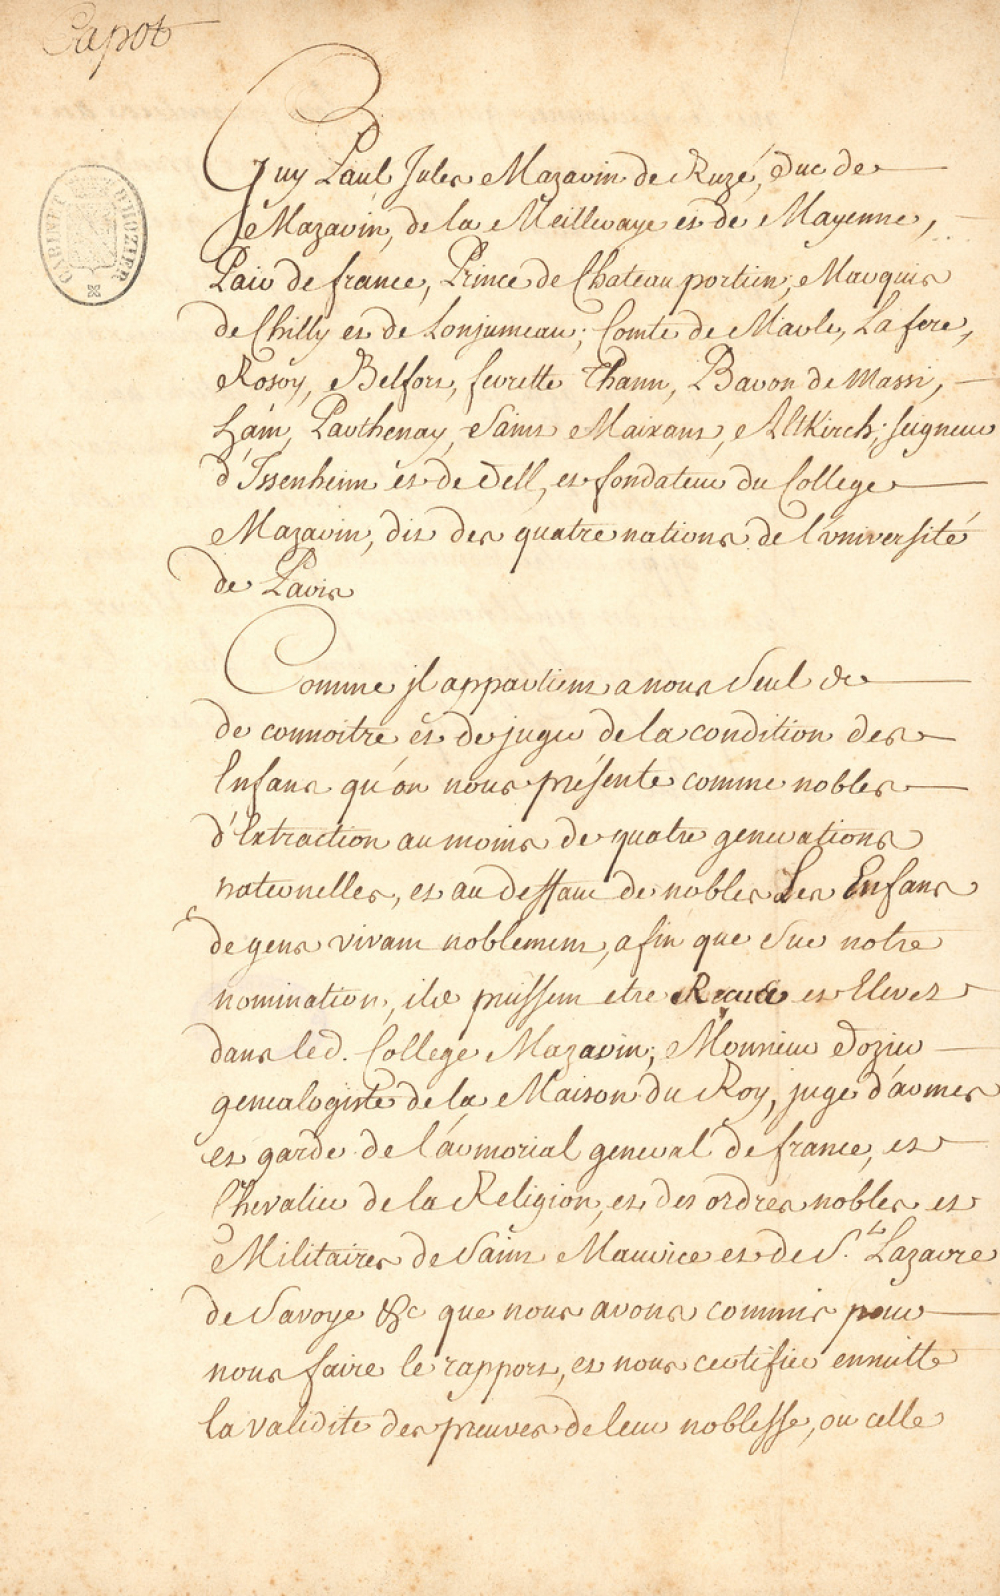 Capot
CABINET D'HOZIER
Guy Paul Jules Mazarin de Ruzé, Duc de
Mazarin, de la Meilleraye et de Mayenne,
Pair de france, Prince de Chateau portien, Marquis
de Chilly et de Lonjumeau; Comte de Marle, La fere,
Rosoy, Belfort, ferrette Thann, Baron de Massi,
ham, Parthenay, Saint Maixant, Altkirch; seigneur
d'Issenheim et de Dell, et fondateur du College
Mazarin, dit des quatre nations de l'université
de Paris
Comme jl appartient a nous Seul de
de connoitre et de juger de la condition des
Enfans qu'on nous présente comme nobles
d'Extraction au moins de quatre generations
paternelles, et au deffaut de nobles Les Enfans
de gens vivant noblement, afin que Sur notre
nomination, ils puissent etre Recus et Elevez
dans led. College Mazarin; Monsieur Dozier
genealogiste de la Maison du Roy, juge d'armes
et garde de l'armorial general de france, et
Chevalier de la Religion, et des ordres nobles et
Militaires de Saint Maurice et de S.t Lazarre
de Savoye &c que nous avons commis pour
nous faire le rapport, et nous certifier ensuitte
la validité des preuves de leur noblesse, ou celle